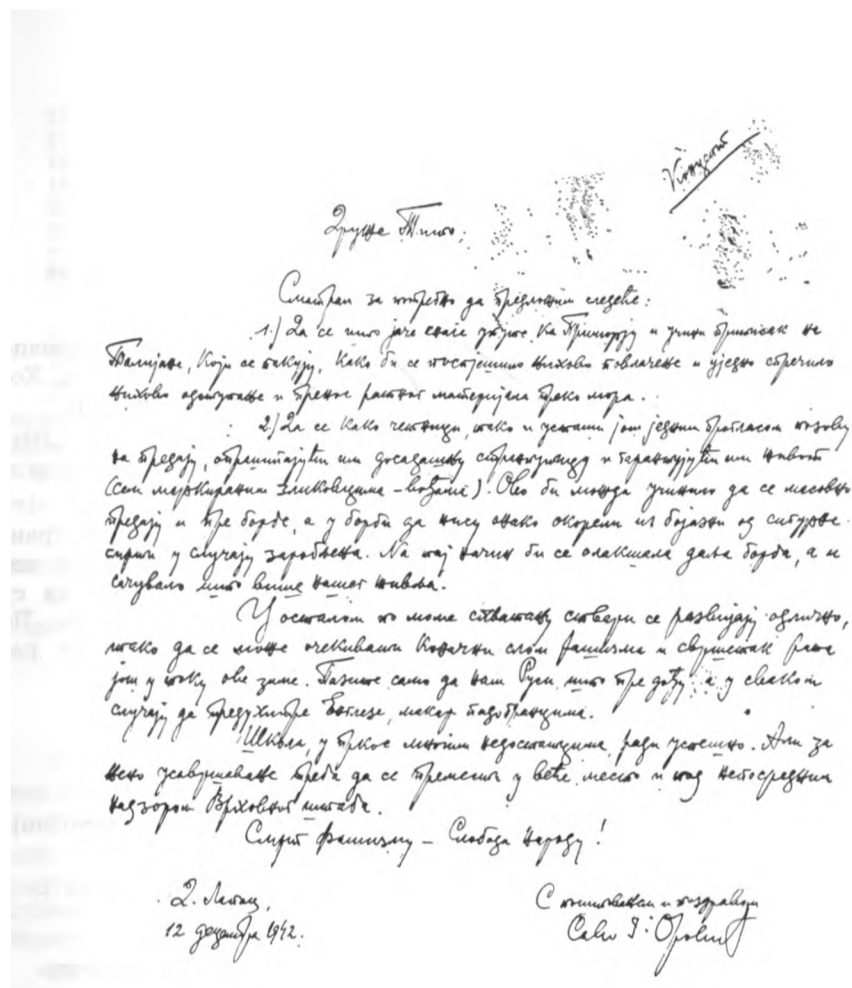 Друже Тито,
Сматрам за потребно да предложим следеће:
1.) Да се што јаче снаге упуте ка Приморју и учини притисак на
Талијане, који се пакују, како би се поспјешило њихово повлачење и уједно спречило
њихово одступање и пренос ратног материјала преко мора.
2.) Да се како четници, тако и усташи још једним прогласом позову
на предају, опраштајући им досадашњу и гарантујући им живот
(сем маркираним зликовцима – вођама). Ово би можда учинило да се масовно
предају и пре борбе, а у борби да нису онако окорели из бојазни од сигурне
смрти у случају заробљења. На тај начин би се олакшала даља борба, а и
сачувало што више нашег живља.
У осталом по моме схватању ствари се развијају одлично,
тако да се може очекивати коначни слом фашизма и свршетак рата
још у току ове зиме. Пазите само да нам Руси што пре дођу, а у сваком
случају да предухитре Енглезе, макар падобранцима.
Школа, у пркос многим недостацима, ради успешно. Али за
њено усавршавање треба да се премести у веће место и под непосредним
надзором Врховног штаба.
Смрт фашизму – Слобода народу!
Д. Лапац,
12 децембра 1942.
С поштовањем и поздравом
Саво Ј. Оровић